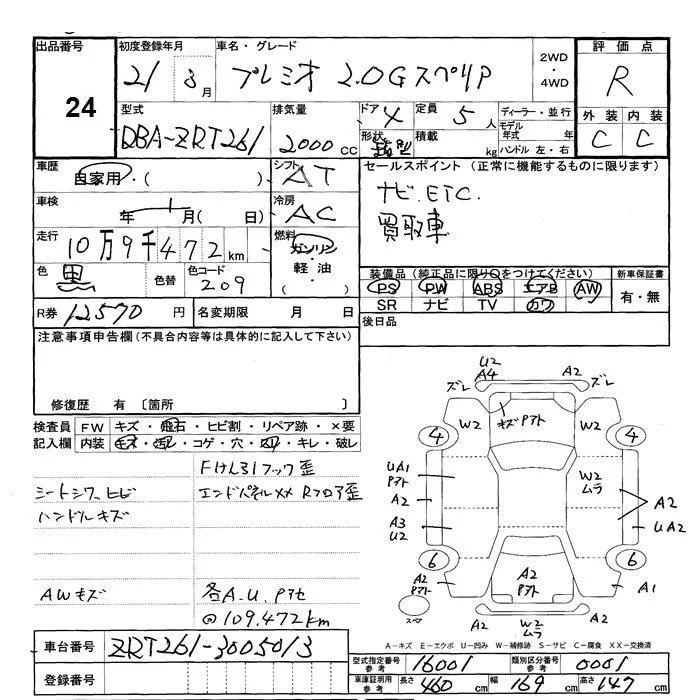 出品番号
24
初度登録年月
21年 8月
車名・グレード
プレミオ 2.0G スペリP
2WD
・
4WD
評価点
R
外装 内装
C C
型式
DBA-ZRT261
排気量
2000 cc
ドア 4
形状
定員 5人
積載 kg
ディーラー・並行
モデル年式 年
ハンドル 左・右
車歴
自家用・( )
シフト
AT
車検
年 月( 日)
冷房
AC
走行
10万9千472km
燃料
ガソリン
・
軽油
・
( )
色
黒
色替
色コード
209
R券 12570円
名変期限 月 日
セールスポイント (正常に機能するものに限ります)
ナビ.ETC.
買取車
装備品 (純正品に限り○をつけてください)
PS PW ABS エアB AW
SR ナビ TV カワ
新車保証書
有・無
後日品
注意事項申告欄 (不具合内容等は具体的に記入して下さい)
修復歴 有 〔箇所 〕
検査員記入欄
FW キズ・飛石・ヒビ割・リペア跡・×要
内装 モネ・汚レ・コゲ・穴・スリ・キレ・破レ
シートシワ、ヒビ
ハンドルキズ
AWキズ
エンドパネルXX Rフロア歪
各A.U.Pアセ
@109,472km
U2
A4
A2
ズレ
ズレ
W2
キズPアト
W2
4
4
UA1
Pアト
A2
A3
U2
W2
ムラ
A2
UA2
6
6
A2
Pアト
A2
Pアト
A1
スペア
W2
ムラ
A2
A-キズ E-エクボ U-凹み W-補修跡 S-サビ C-腐食 XX-交換済
車台番号
ZRT261-3005013
登録番号
型式指定番号 参考 16001
類別区分番号 参考 0001
車庫証明用 参考
長さ 460cm 幅 169cm 高さ 147cm